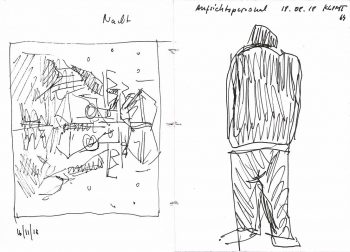 Nacht
14/11/18
Aufsichtspersonal 18.08.18 KLIMT